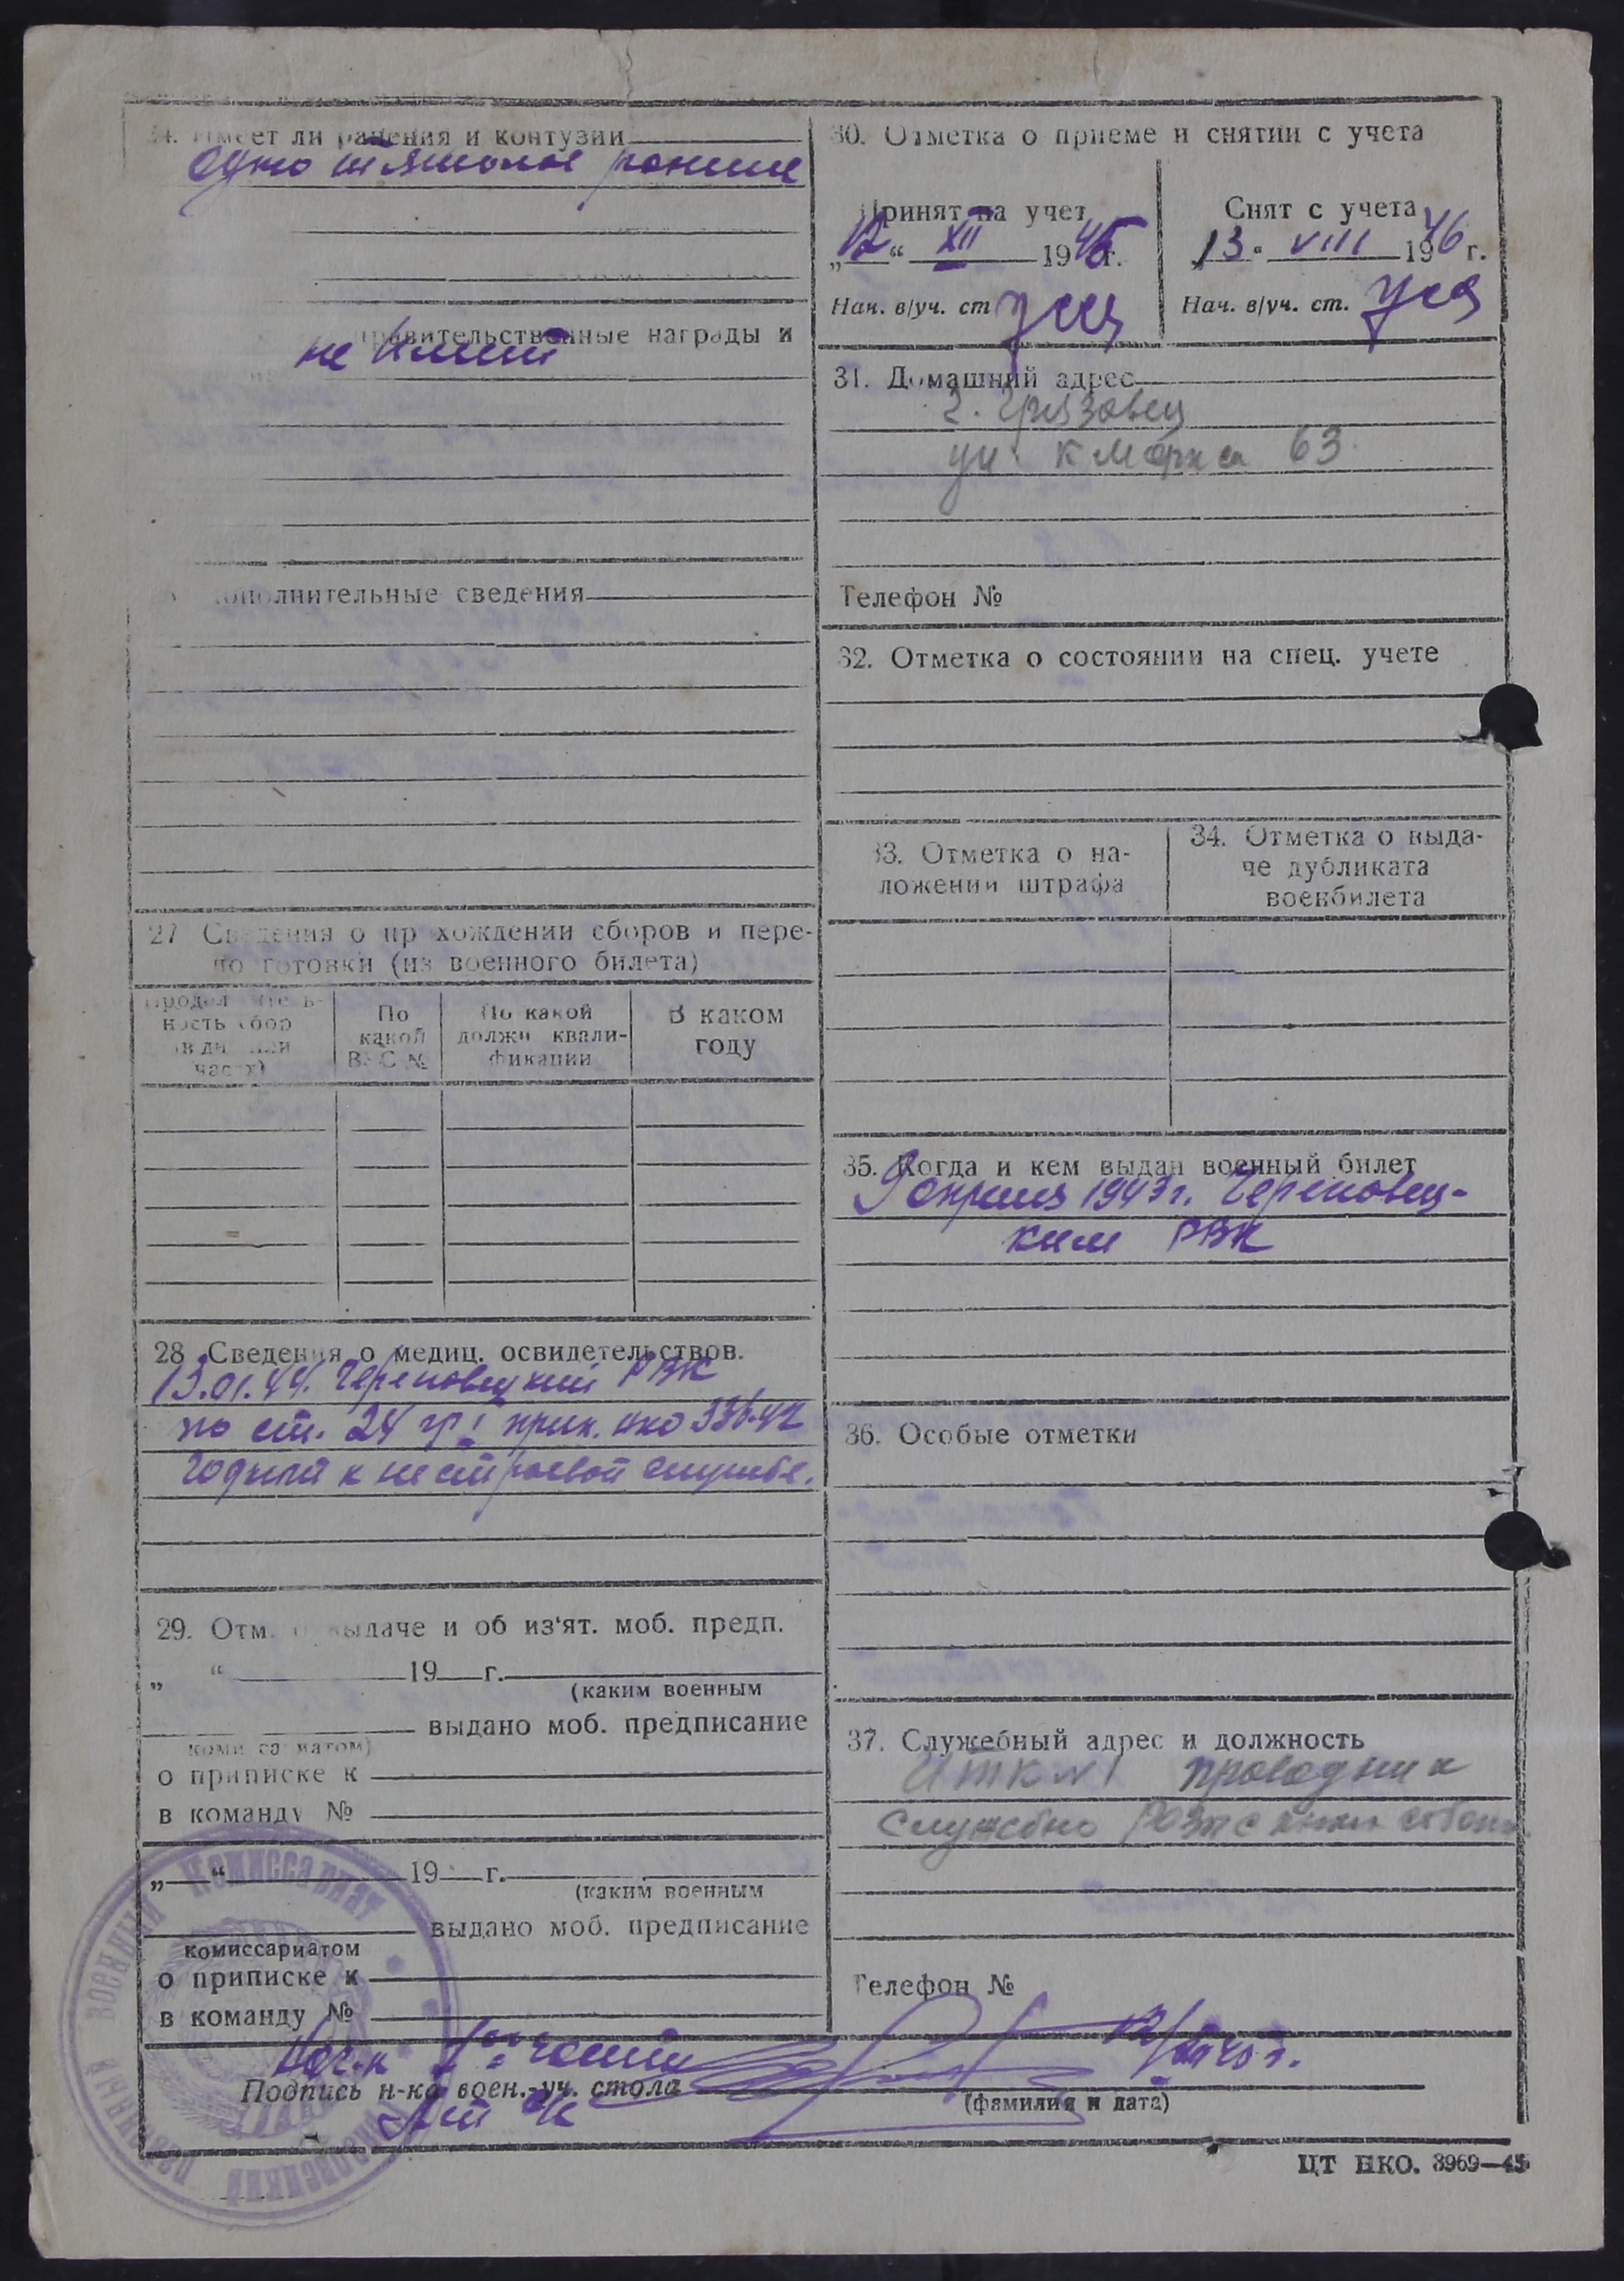 24. Имеет ли ранения и контузии
одно тяжолое ранение
правительственные награды и
не имеет
дополнительные сведения
27 Сведения о прохождении сборов и пере-
подготовки (из военного билета)
Продолжитель-
ность сбор
(в дн или
часах)
По
какой
ВУС №
По какой
должн квали-
фикации
В каком
году
28 Сведения о медиц. освидетельствов.
13.01.44. Череповецкий РВК
по ст. 24 гр I прик. нко 336-42
годный к нестроевой службе.
29. Отм. о выдаче и об из‘ят. моб. предп.
„ “ 19 г.
(каким военным
выдано моб. предписание
комиссариатом)
о приписке к
в команду №
„ “ 19 г.
(каким военным
выдано моб. предписание
комиссариатом
о приписке к
в команду №
30. Отметка о приеме и снятии с учета
Принят на учет
„12“ XII 1945г.
Нач. в/уч. ст
Снят с учета
13 VIII 1946 г.
Нач. в/уч. ст.
31. Домашний адрес
г. Грязовец
ул. К Маркса 63
Телефон №
32. Отметка о состоянии на спец. учете
33. Отметка о на-
ложении штрафа
34. Отметка о выда-
че дубликата
военбилета
35. Когда и кем выдан военный билет
9 апреля 1943 г. Череповец-
ким РВК
36. Особые отметки
37. Служебный адрес и должность
ИТК №1 проводник
служебно
Телефон №
Нач-к
Подпись н-ка воен.-уч. стола
(фамилия и дата)
ЦТ НКО. 3969—45
Военный Комиссариат